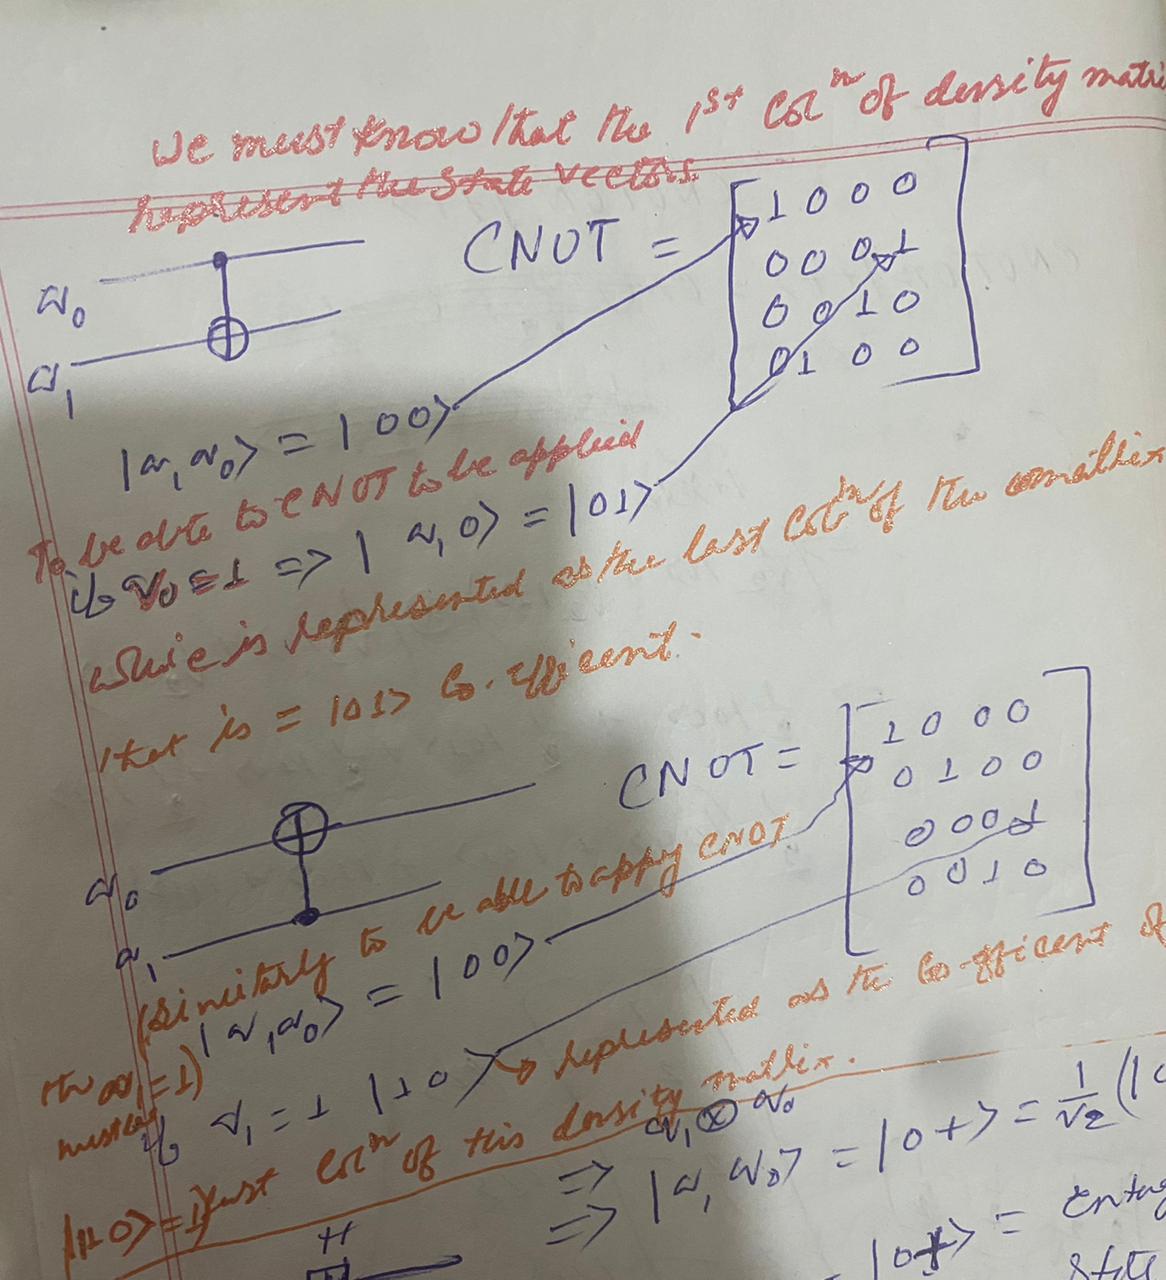 We must know that the 1st Colⁿ of density matri
represent the state vectors.
CNOT = [
1 0 0 0
0 0 0 1
0 0 1 0
0 1 0 0
]
q₀
q₁
|q₁q₀⟩ = |00⟩
To be able to CNOT to be applied
if q₀ = 1 ⇒ | q₁0⟩ = |01⟩
which is represented as the last Colⁿ of the matrix
that is = |01> Co-efficent.
CNOT = [
1 0 0 0
0 1 0 0
0 0 0 1
0 0 1 0
]
q₀
q₁
(Similarly to be able to appy CNOT
|q₁q₀⟩ = |00⟩
the q₁ = 1)
must be
if q₁ = 1 |10⟩ → represented as the Co-efficent of
last Colⁿ of this density matrix.
|10⟩ = 1
⇒ q₁ ⊗ q₀
⇒ |q₁ q₀⟩ = |0+⟩ = 1/√2 (|0
H
|0+⟩ = Entag
State